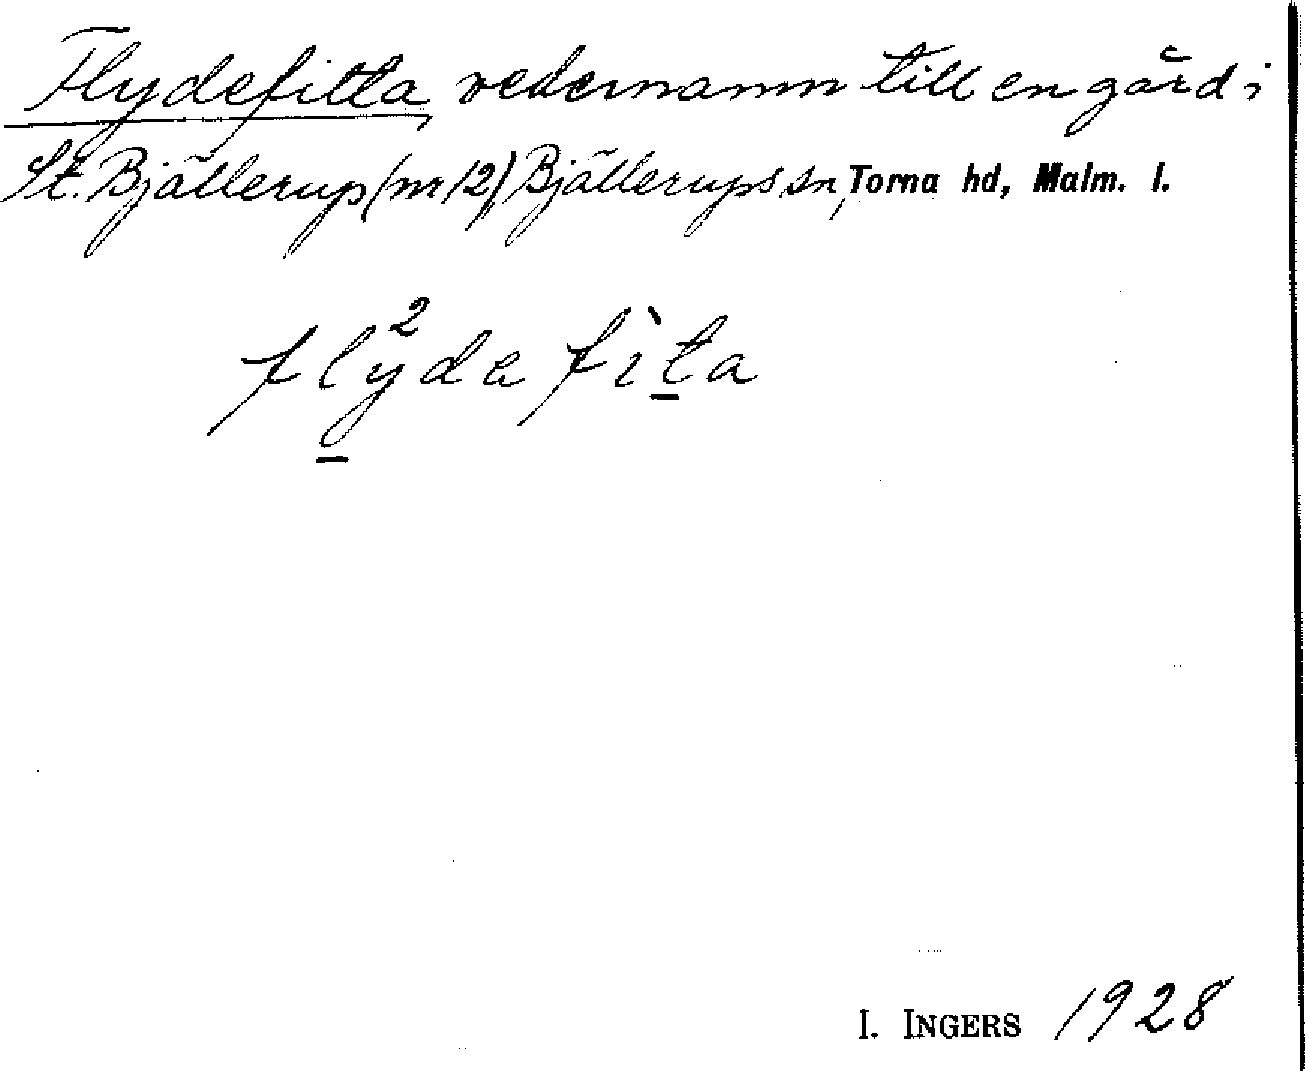 Flydefitta, vedernamn till en gård i
St. Bjällerup (nr 12) Bjällerups sn, Torna hd, Malm. l.
fly²da fìta
I. INGERS 1928